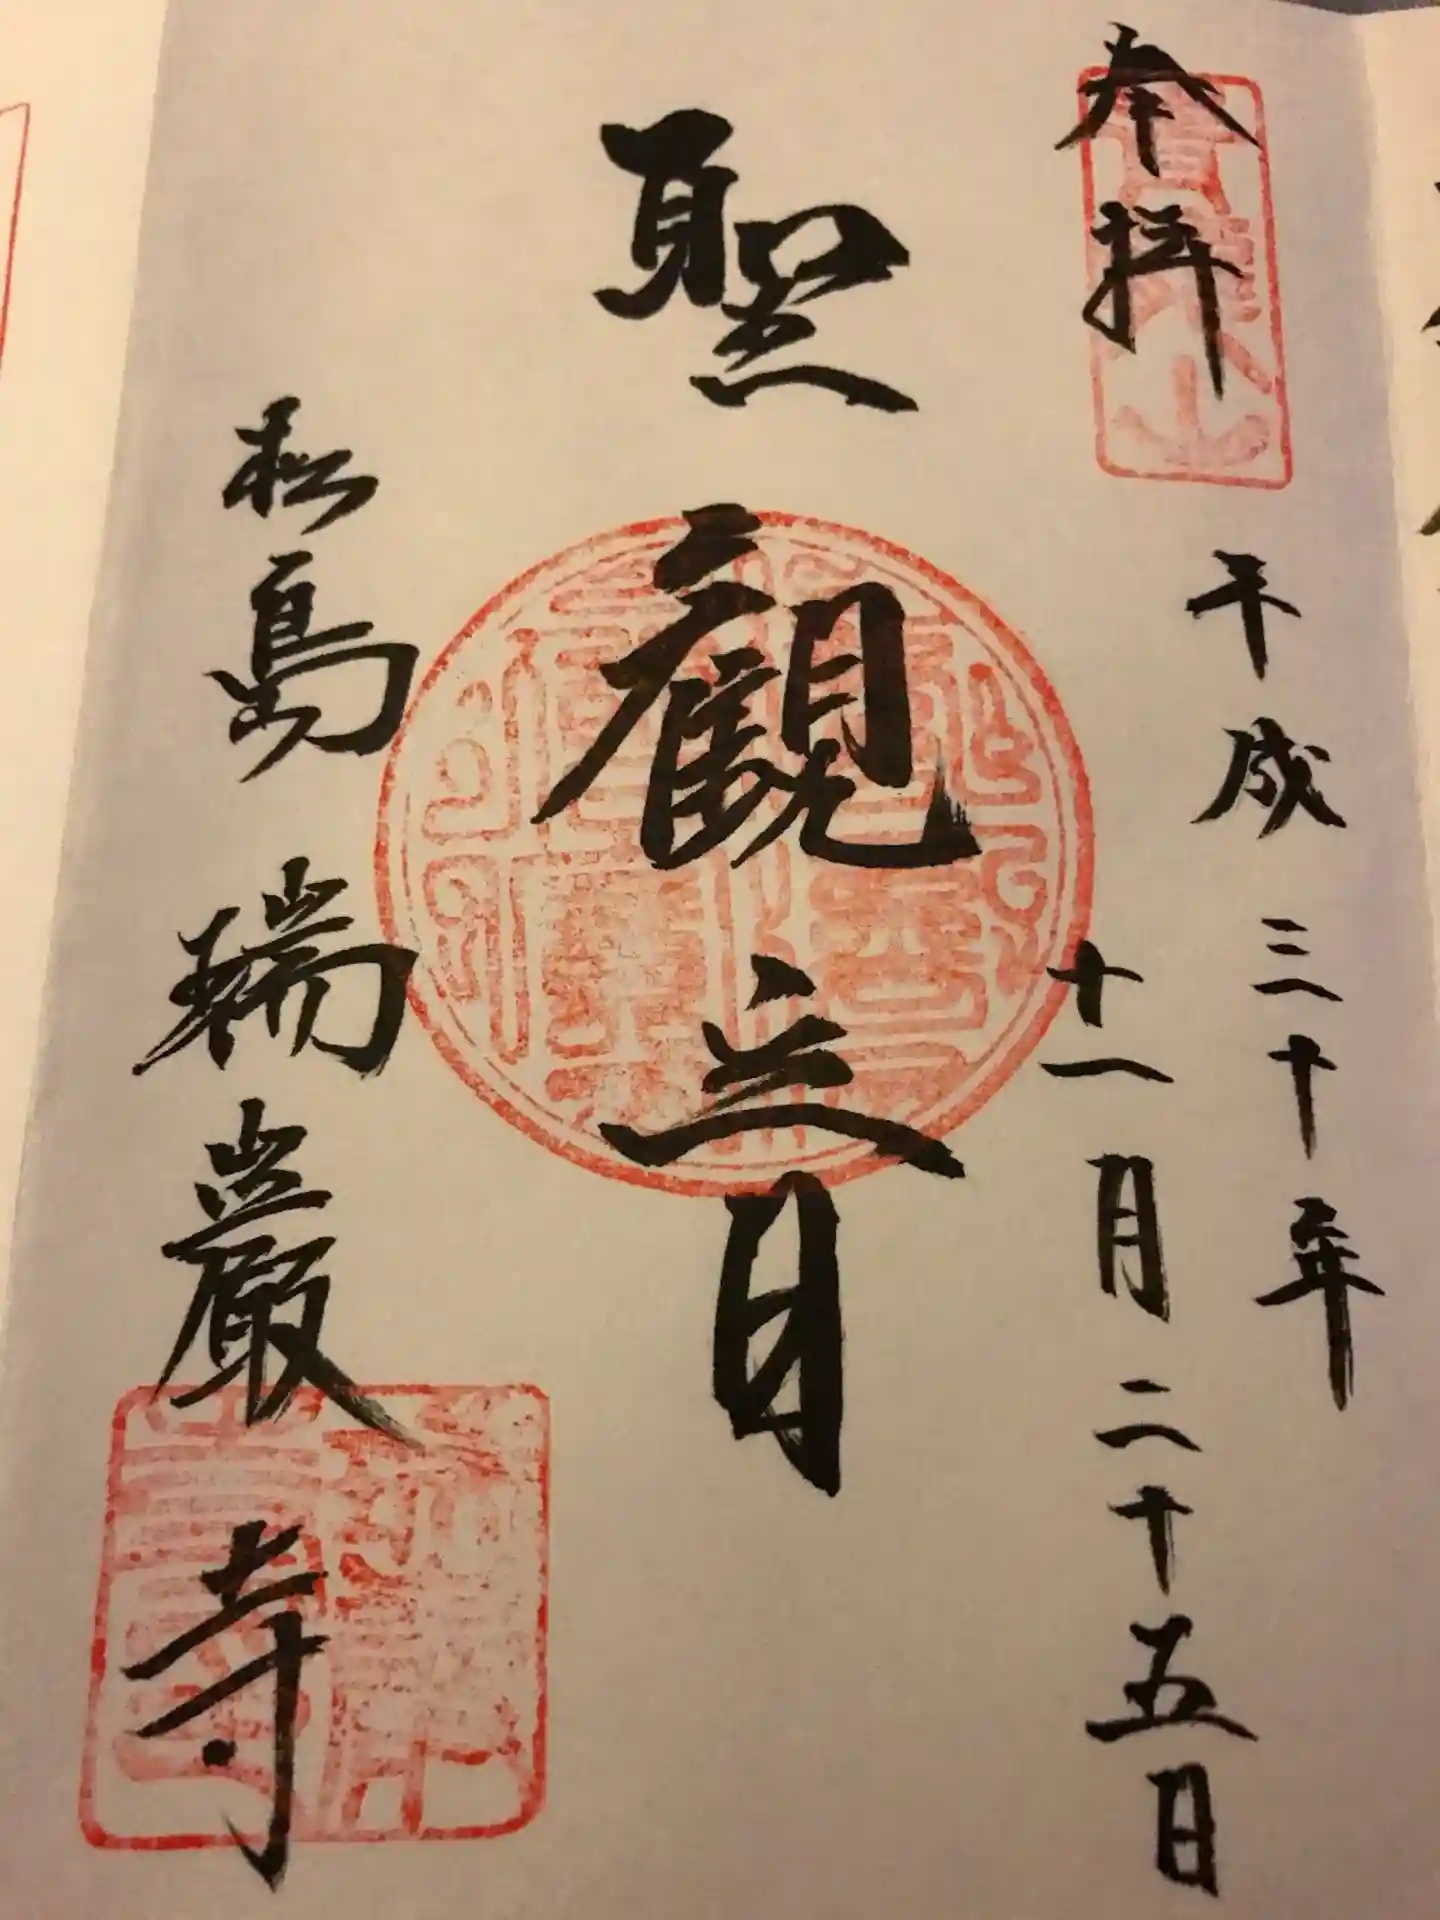 奉拝
平成三十年
十一月二十五日
聖觀音
松島瑞巖寺